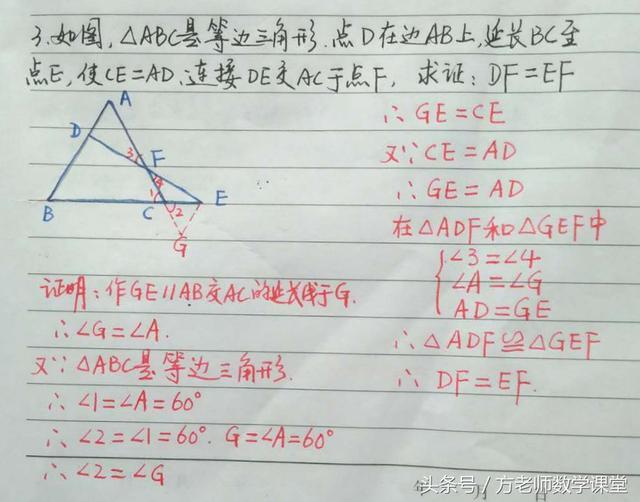 3.如图,△ABC是等边三角形.点D在边AB上,延长BC至
点E,使CE=AD.连接DE交AC于点F, 求证:DF=EF
A
D
3
F
4
1
B
C
2
E
G
证明:作GE//AB交AC的延长线于G.
∴∠G=∠A.
又∵△ABC是等边三角形.
∴∠1=∠A=60°
∴∠2=∠1=60°. G=∠A=60°
∴∠2=∠G
∴GE=CE
又∵CE=AD
∴GE=AD
在△ADF和△GEF中
∠3=∠4
∠A=∠G
AD=GE
∴△ADF≌△GEF
∴DF=EF.
头条号／方老师数学课堂